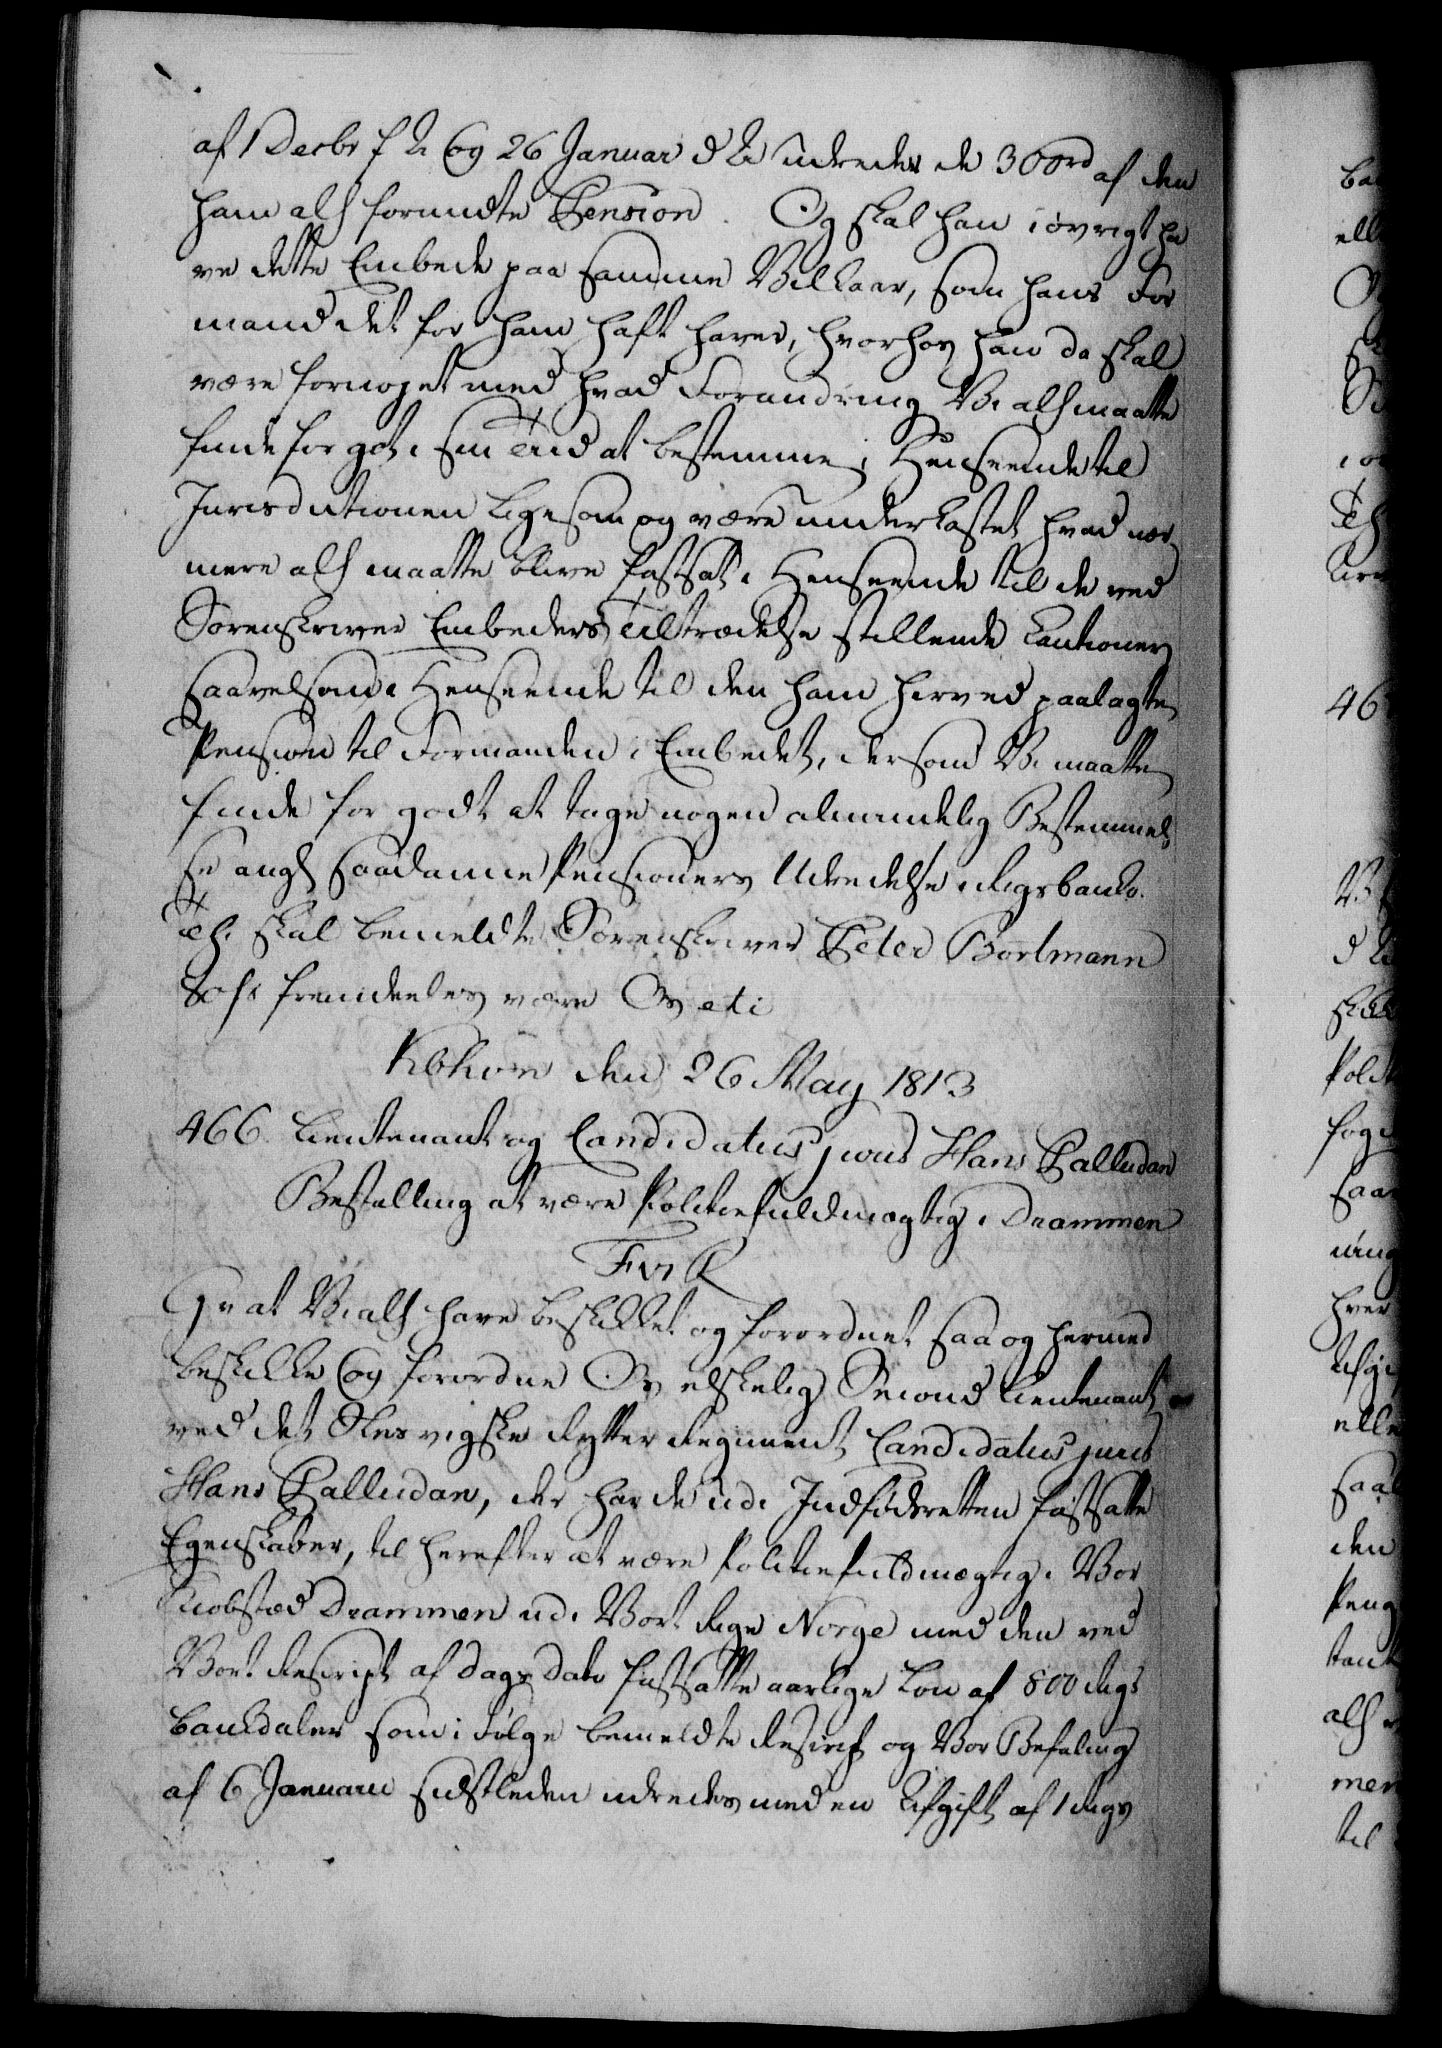 af 1 Decbr f A og 26 Januar d A udredes de 300rd af den
ham alf forundte Pension. Og skal han i øvrigt ha
ve dette Embede paa samme Vilkaar, som hans For
mand det før ham haft haver, hvorhos han da skal
være fornøjet med hvad Forandring Vi alf maatte
finde for got i sin Tiid at bestemme i Henseende til
Jurisdictionen ligesom og være underkastet hvad nær
mere alf maatte blive fastsat i Henseende til de ved
Sorenskriver Embeders Tiltrædelse stillende Cautioner
saavelsom i Henseende til den ham herved paalagte
Pension til Formanden i Embedet, dersom Vi maatte
finde for godt at tage nogen almindelig Bestemmel
se angl saadanne Pensioners Udredelse i Rigsbanko.
Thi skal bemeldte Sorenskriver Peter Bortmann
fremdeles være Os etc
Kbhvn den 26 May 1813
466. Lieutenant og Candidatus juris Hans Palludan
Bestalling at være Politiefuldmægtig i Drammen
FVIR
G v at Vi alf have beskikket og forordnet saa og hermed
beskikke og forordne Os elskelig Second Lieutenant
ved det Slesvigske Rytter Regiment Candidatus juris
Hans Palludan, der har de udi Indfødsretten fastsatte
Egenskaber, til herefter at være Politiefuldmægtig i Vor
Kiøbstæd Drammen udi Vort Rige Norge med den ved
Vort Rescript af Dags Dato fastsatte aarlige Løn af 800 Rigs
bankdaler som i Følge bemeldte Rescript og Vor Befaling
af 6 Januarii sidstleden udredes med en Afgift af 1 Rigs